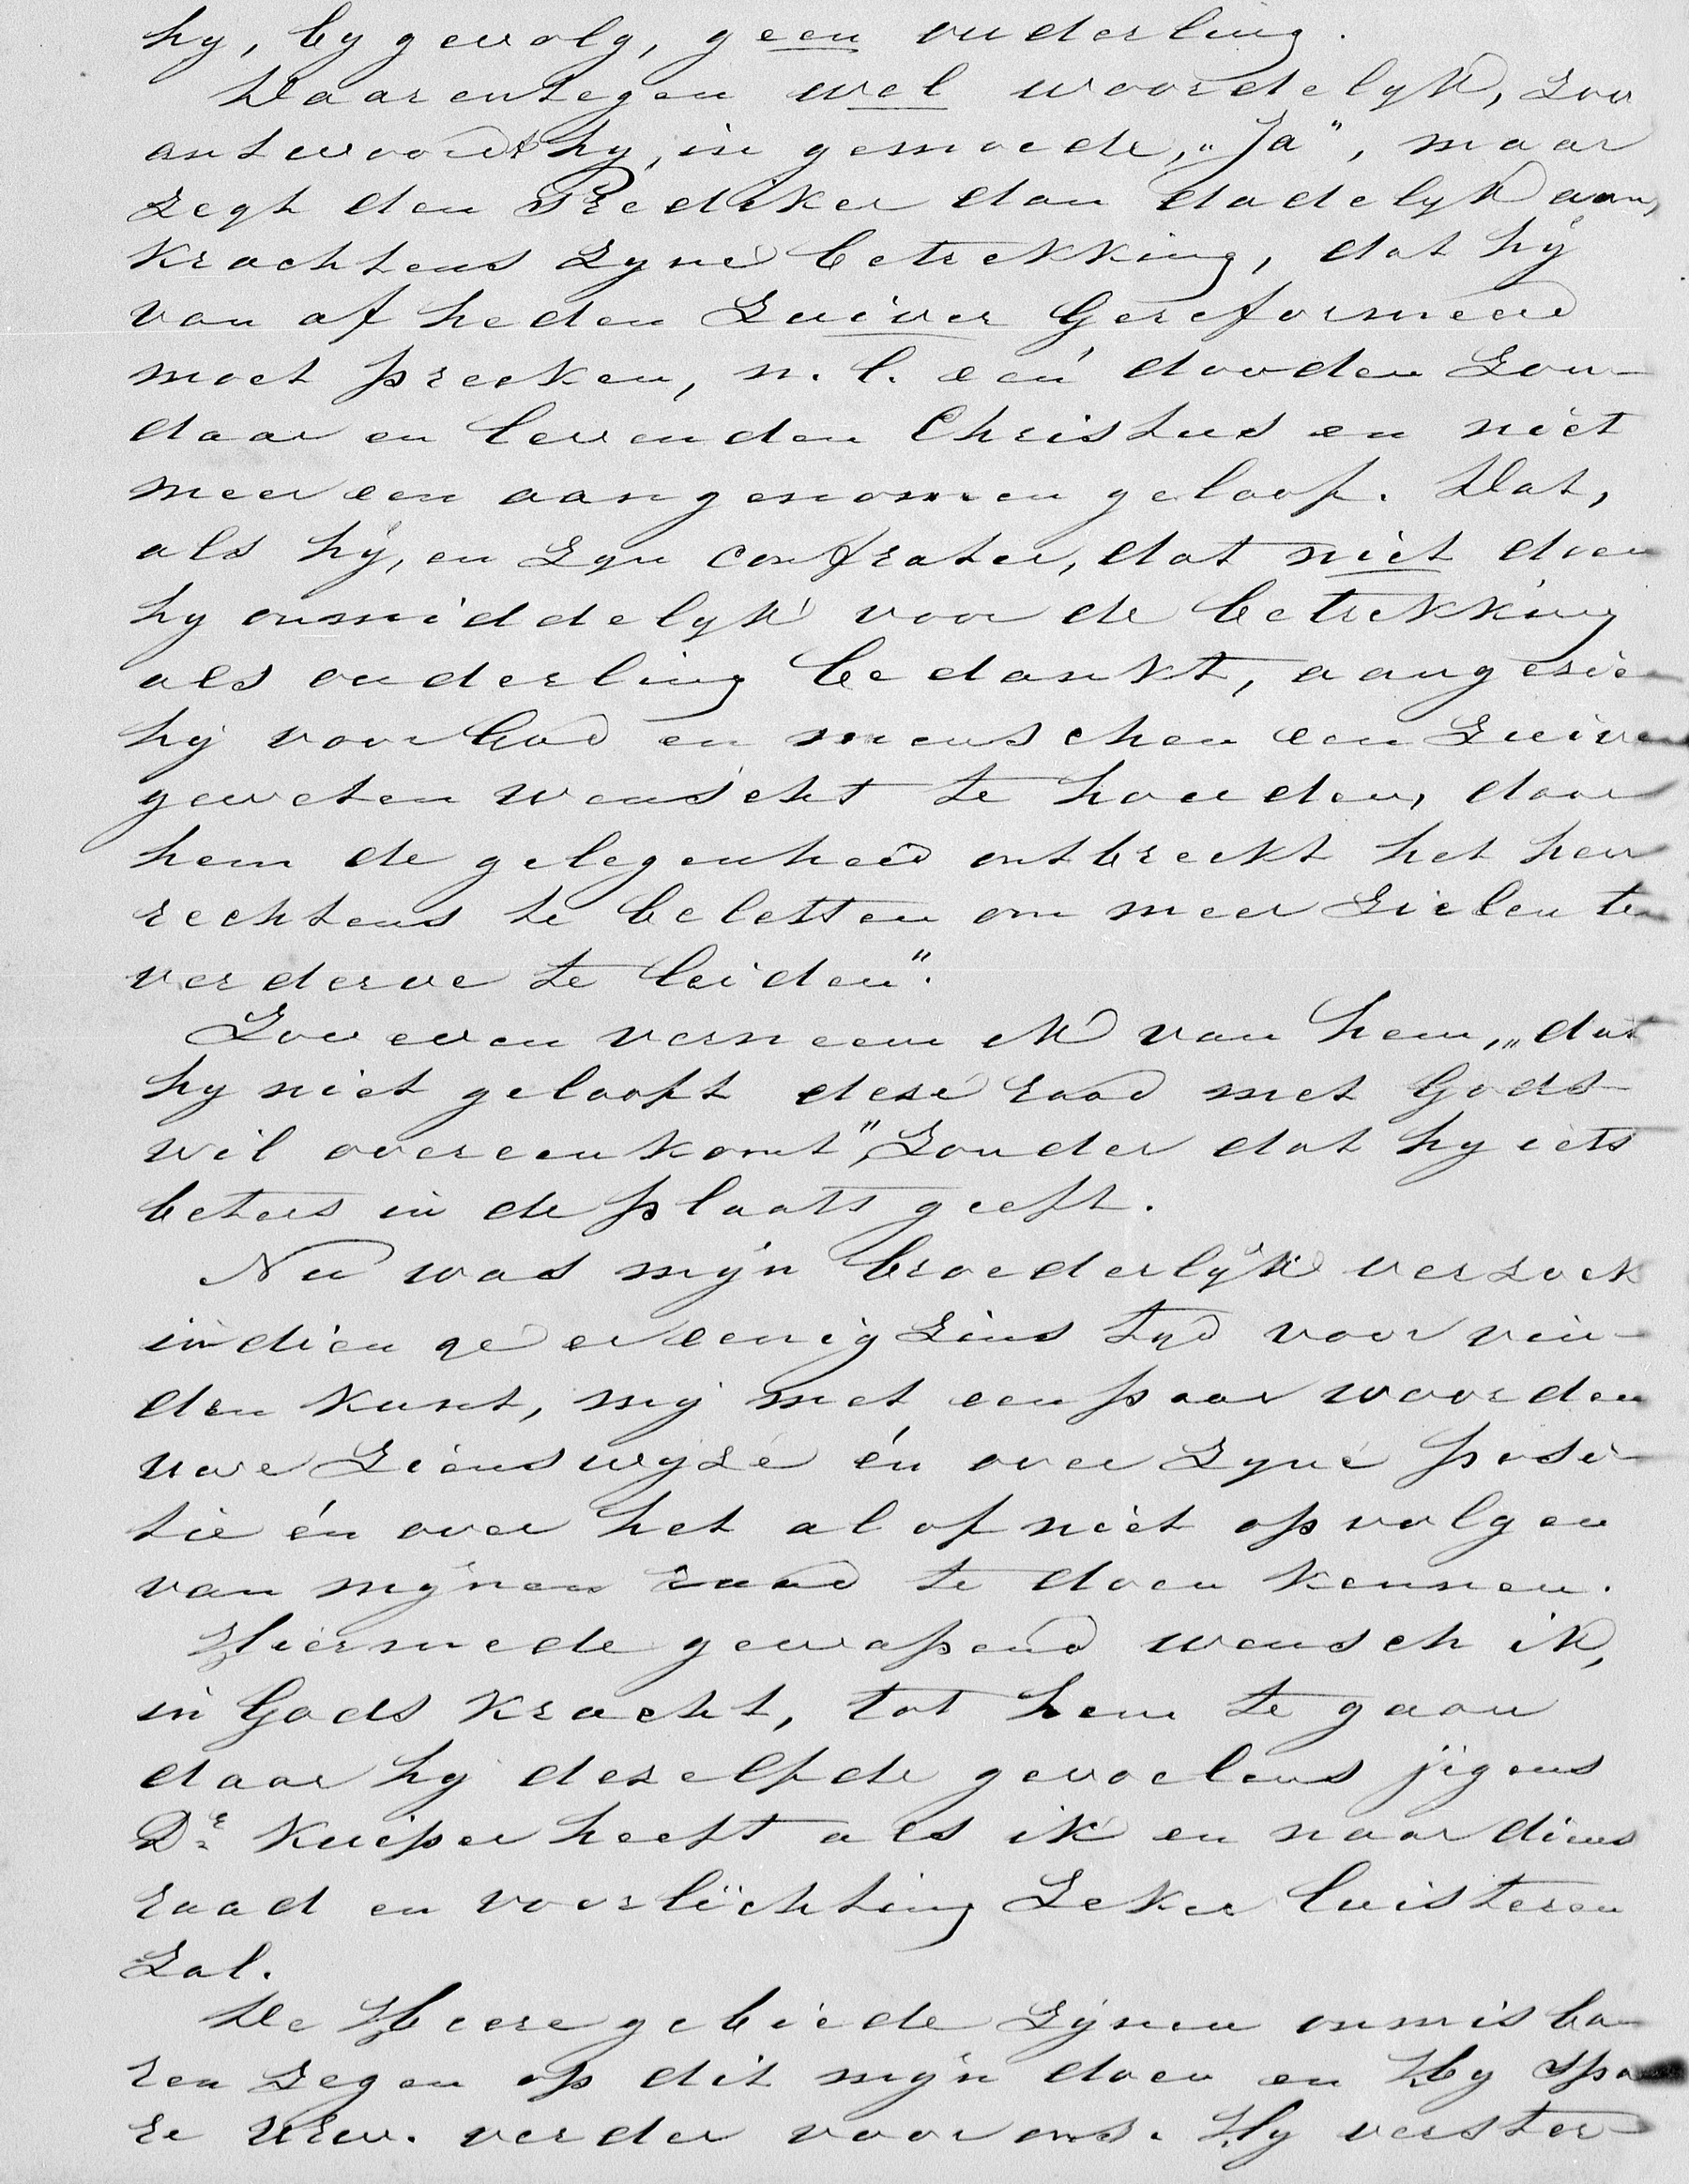 hy, by gevolg, geen ouderling.
Daarentegen wel woordelyk, zoo
antwoordt hy, in gemoede, „Ja", maar
zegt den Prediker dan dadelyk aan,
krachtens zyne betrekking, dat hy
van af heden zuiver Gereformeerd
moet preeken, n.l. een dooden zon-
daar en levenden Christus en niet
meer een aangenomen geloof. Dat,
als hy, en zyn confrater, dat niet doen
hy onmiddelyk voor de betrekking
als ouderling bedankt, aangezien
hy voor God en menschen een zuiver
geweten wenscht te houden, daar
hem de gelegenheid ontbreekt het hen
rechtens te beletten om meer zielen ten
verderve te leiden".
Zoo even verneem ik van hem, „dat
hy niet gelooft deze raad met Gods
wil overeenkomt", zonder dat hy iets
beters in de plaats geeft.
Nu was myn broederlyk verzoek
indien ge er eenigzins tyd voor vin-
den kunt, my met een paar woorden
uwe zienswyze én over zyne posi-
tie én over het al of niet opvolgen
van mynen raad te doen kennen.
Hiermede gewapend wensch ik,
in Gods kracht, tot hem te gaan
daar hy dezelfde gevoelens jegens
Dr Kuiper heeft als ik en naar diens
raad en voorlichting zeker luisteren
zal.
De Heere gebiede zynen onmisba-
ren zegen op dit myn doen en Hy spa
re UEw. verder voor ons. Hy verster-